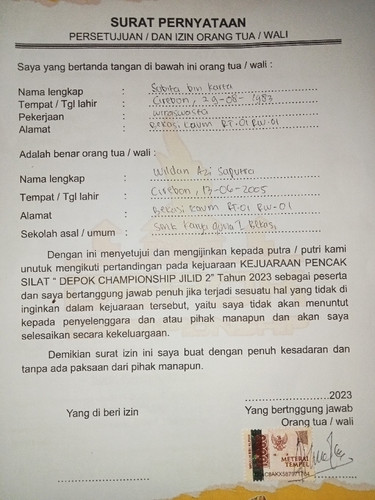 SURAT PERNYATAAN
PERSETUJUAN / DAN IZIN ORANG TUA / WALI
Saya yang bertanda tangan di bawah ini orang tua / wali :
Nama lengkap : Subita bin karta
Tempat / Tgl lahir : Cirebon, 29-08-1983
Pekerjaan : wiraswasta
Alamat : Bekasi, Kaum RT.01 RW.01
Adalah benar orang tua / wali :
Nama lengkap : Wildan Azi Saputra
Tempat / Tgl lahir : Cirebon, 13-06-2005
Alamat : Bekasi, kaum RT.01 RW-01
Sekolah asal / umum : SMK
Dengan ini menyetujui dan mengijinkan kepada putra / putri kami
unutuk mengikuti pertandingan pada kejuaraan KEJUARAAN PENCAK
SILAT " DEPOK CHAMPIONSHIP JILID 2" Tahun 2023 sebagai peserta
dan saya bertanggung jawab penuh jika terjadi sesuatu hal yang tidak di
inginkan dalam kejuaraan tersebut, yaitu saya tidak akan menuntut
kepada penyelenggara dan atau pihak manapun dan akan saya
selesaikan secara kekeluargaan.
Demikian surat izin ini saya buat dengan penuh kesadaran dan
tanpa ada paksaan dari pihak manapun.
......................2023
Yang di beri izin
Yang bertnggung jawab
Orang tua / wali
METERAI
TEMPEL